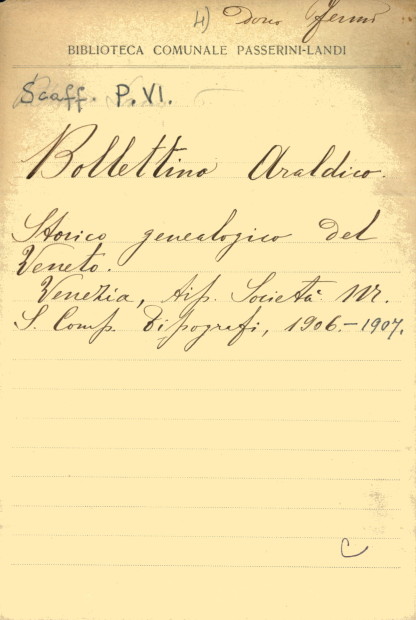 4) Dono Fermi
BIBLIOTECA COMUNALE PASSERINI-LANDI
Scaff. P. VI.
Bollettino Araldico.
Storico genealogico del
Veneto.
Venezia, Tip. Società M.
S. Comp. Tipografi, 1906.-1907.
C